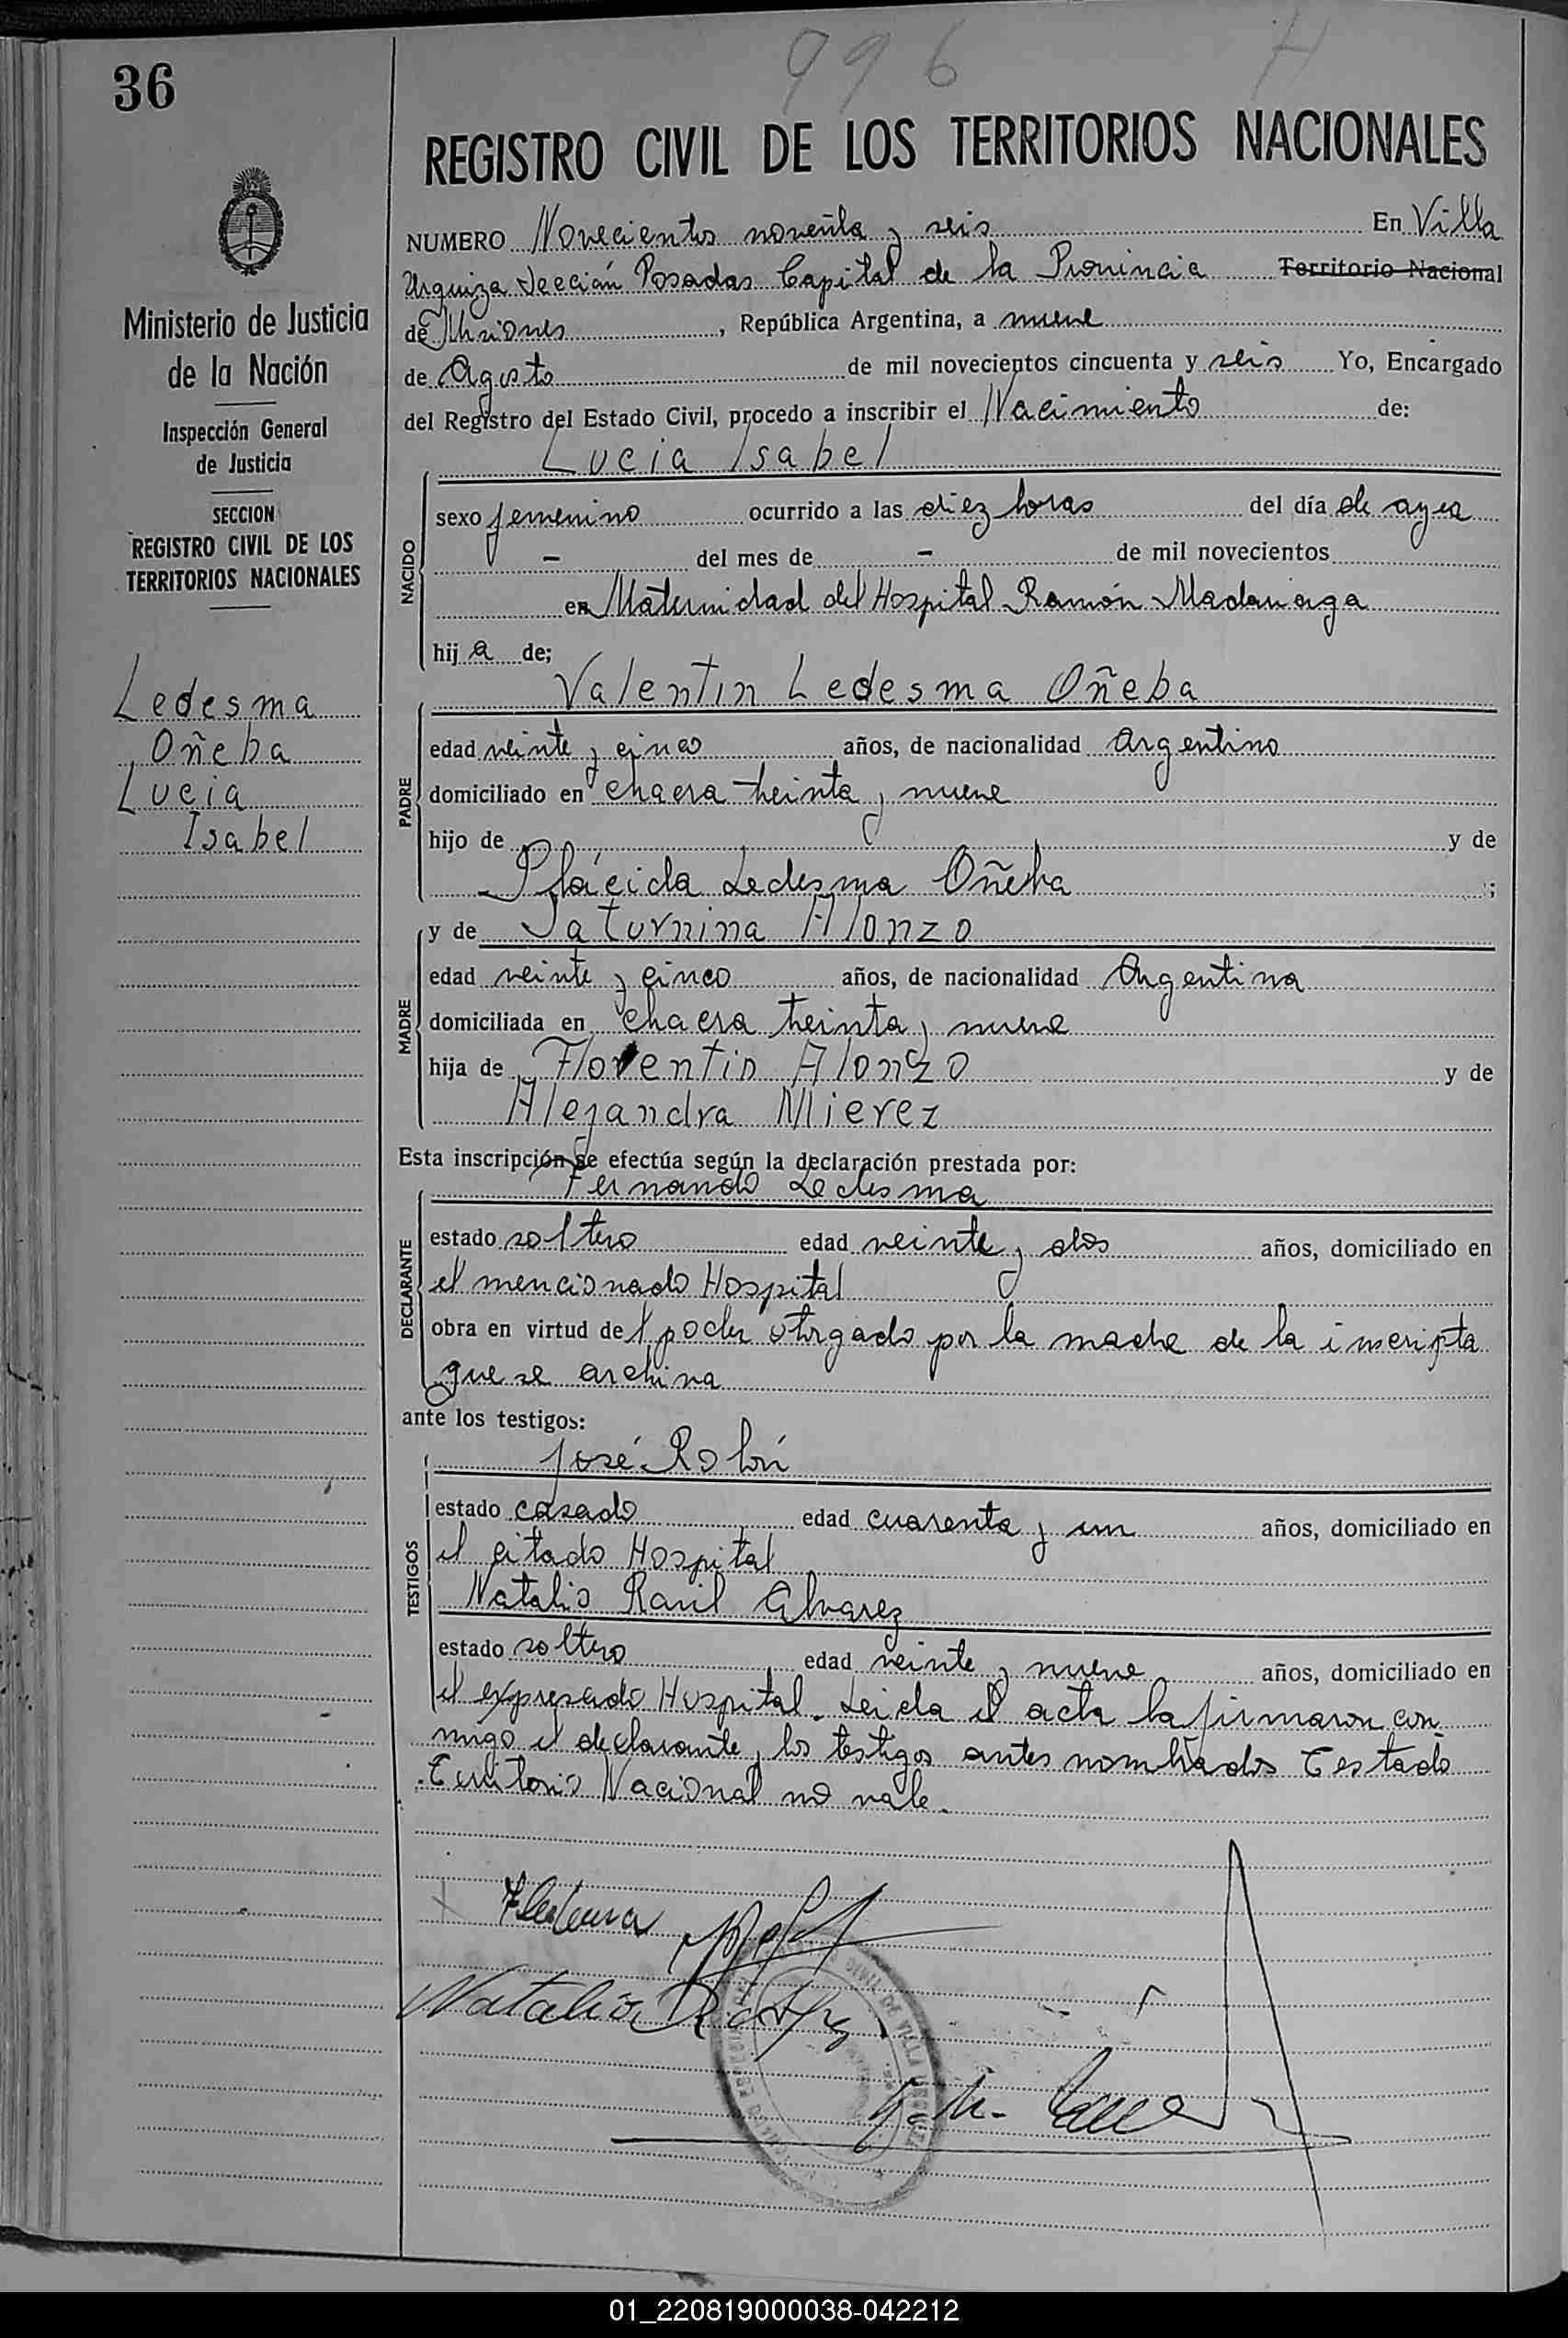 996
36
REGISTRO CIVIL DE LOS TERRITORIOS NACIONALES
NUMERO Novecientos noventa y seis En Villa
Urquiza Sección Posadas Capital de la Provincia Territorio Nacional
de Misiones, República Argentina, a nueve
de Agosto de mil novecientos cincuenta y seis Yo, Encargado
del Registro del Estado Civil, procedo a inscribir el Nacimiento de:
Ministerio de Justicia
de la Nación
Inspección General
de Justicia
SECCION
REGISTRO CIVIL DE LOS
TERRITORIOS NACIONALES
Ledesma
Oñeba
Lucia
Isabel
Lucia Isabel
NACIDO
sexo femenino ocurrido a las diez horas del día de ayer
- del mes de - de mil novecientos
en Maternidad del Hospital Ramón Madariaga
hija de;
Valentin Ledesma Oñeba
PADRE
edad veinte y cinco años, de nacionalidad Argentino
domiciliado en chacra treinta y nueve
hijo de y de
Plácida Ledesma Oñeba ;
y de Saturnina Alonzo
MADRE
edad veinte y cinco años, de nacionalidad Argentina
domiciliada en chacra treinta y nueve
hija de Florentin Alonzo y de
Alejandra Mierez
Esta inscripción se efectúa según la declaración prestada por:
Fernando Ledesma
DECLARANTE
estado soltero edad veinte y dos años, domiciliado en
el mencionado Hospital
obra en virtud del poder otorgado por la madre de la inscripta
que se archiva
ante los testigos:
José Rolón
TESTIGOS
estado casado edad cuarenta y un años, domiciliado en
el citado Hospital
Natalio Raúl Alvarez
estado soltero edad veinte y nueve años, domiciliado en
el expresado Hospital. Leida el acta la firmaron con
migo el declarante y los testigos antes nombrados Testado
Territorio Nacional no vale.
FLedesma
Natalio R
CIVIL DE VILLA URQUIZA
01_220819000038-042212